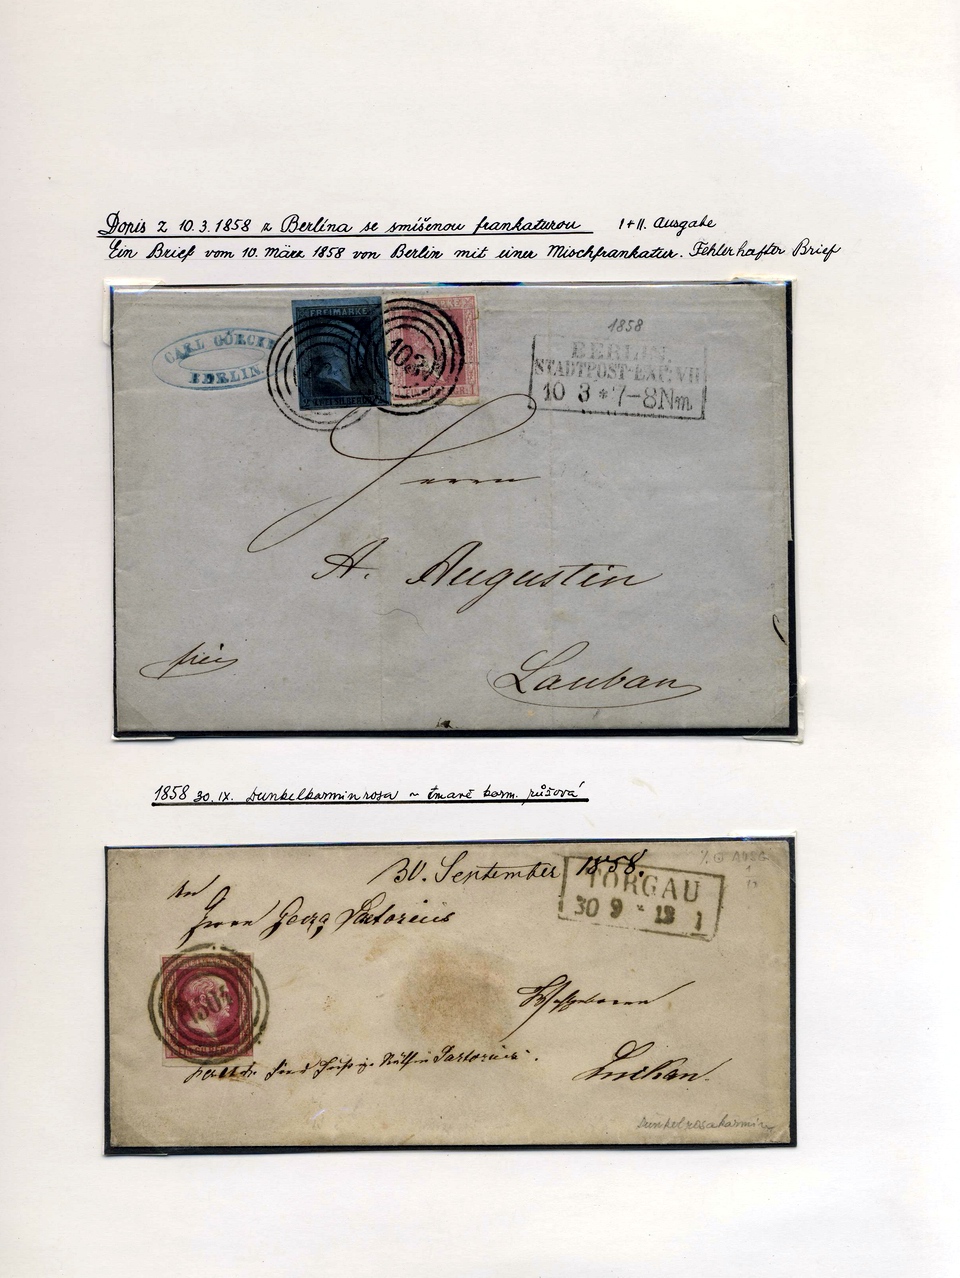 Dopis z 10.3.1858 z Berlína se smíšenou frankaturou I+II. Ausgabe
Ein Brief vom 10. März 1858 von Berlin mit einer Mischfrankatur. Fehlerhafter Brief
CARL GÖRCKE
BERLIN.
FREIMARKE
SILBERGR
103
1858
BERLIN.
STADTPOST-EXP. VII
10 3 * 7-8 Nm
Herrn
A. Augustin
frei
Lauban
1858 30.IX. Dunkelkarminrosa ~ tmavě karm. růžová
30. September 1858.
TORGAU
30 9 * 12 1
An
Herrn Georg Sartorius
Wohlgeboren
1504
Sartorius.
Luckau.
Dunkelrosakarmin